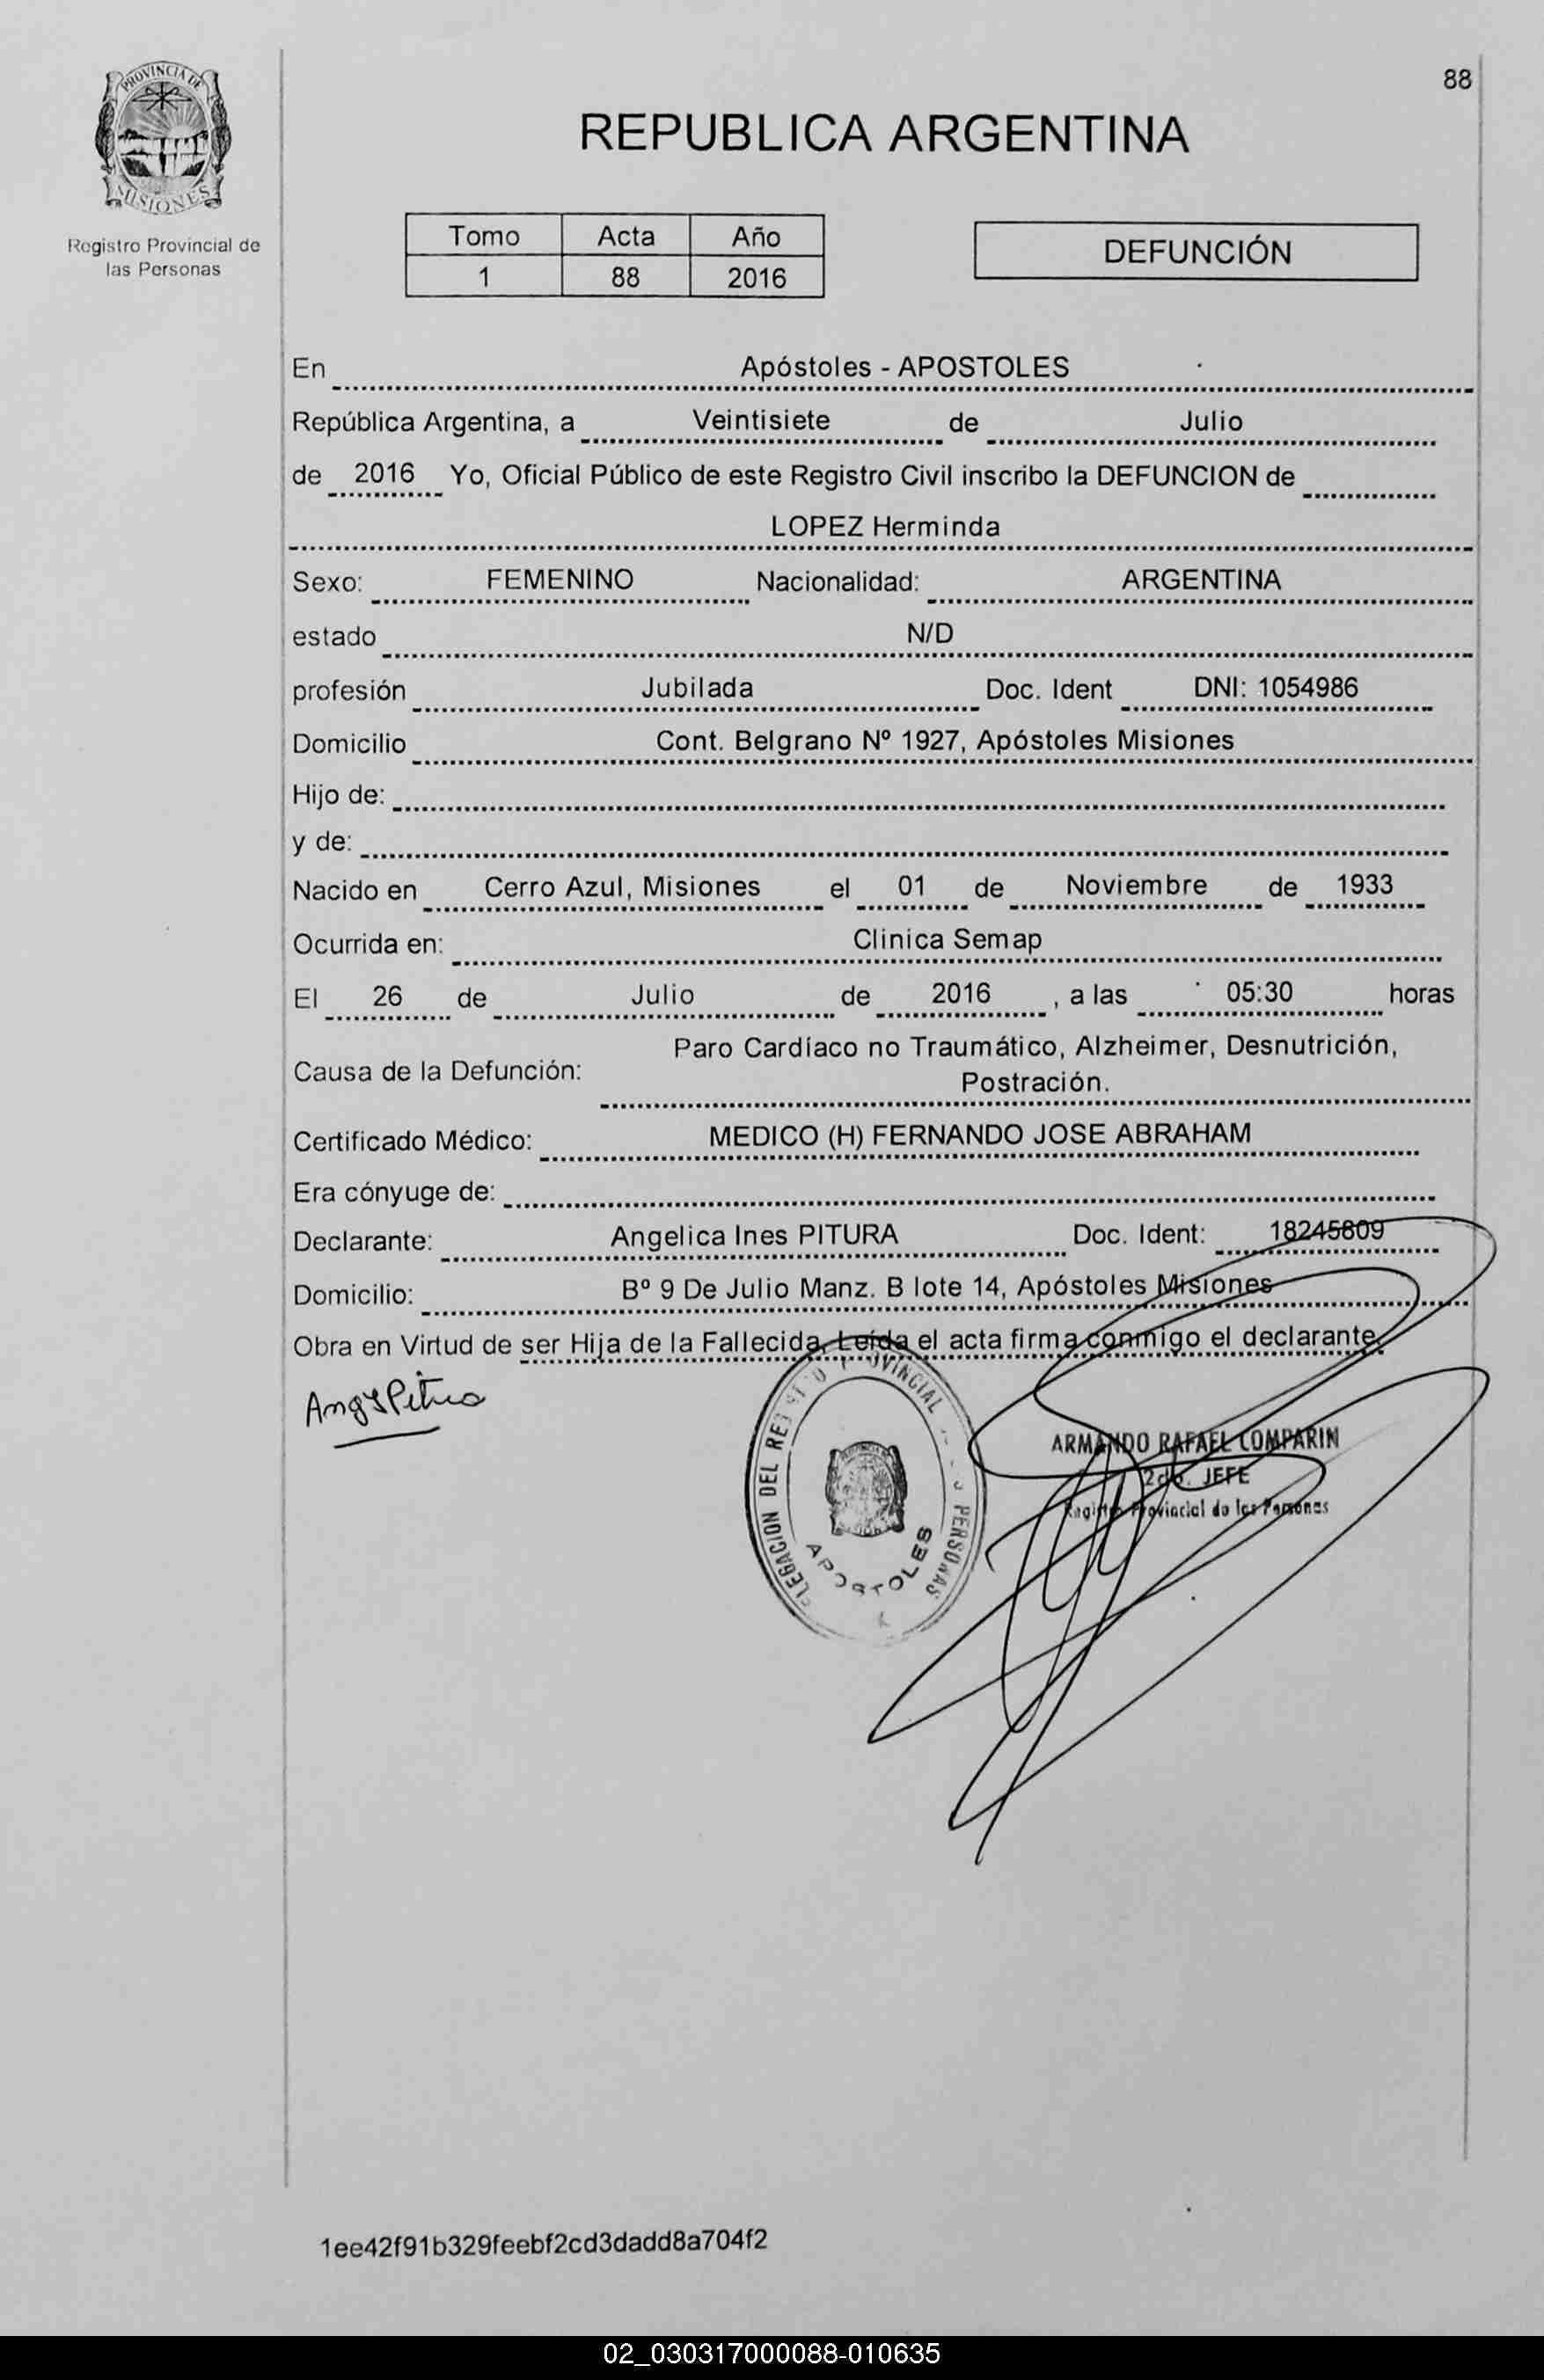 88
PROVINCIA DE
MISIONES
Registro Provincial de
las Personas
REPUBLICA ARGENTINA
Tomo Acta Año
1 88 2016
DEFUNCIÓN
En Apóstoles - APOSTOLES
República Argentina, a Veintisiete de Julio
de 2016 Yo, Oficial Público de este Registro Civil inscribo la DEFUNCION de
LOPEZ Herminda
Sexo: FEMENINO Nacionalidad: ARGENTINA
estado N/D
profesión Jubilada Doc. Ident DNI: 1054986
Domicilio Cont. Belgrano Nº 1927, Apóstoles Misiones
Hijo de:
y de:
Nacido en Cerro Azul, Misiones el 01 de Noviembre de 1933
Ocurrida en: Clinica Semap
El 26 de Julio de 2016 , a las 05:30 horas
Causa de la Defunción: Paro Cardíaco no Traumático, Alzheimer, Desnutrición,
Postración.
Certificado Médico: MEDICO (H) FERNANDO JOSE ABRAHAM
Era cónyuge de:
Declarante: Angelica Ines PITURA Doc. Ident: 18245809
Domicilio: Bº 9 De Julio Manz. B lote 14, Apóstoles Misiones
Obra en Virtud de ser Hija de la Fallecida, Leída el acta firma conmigo el declarante,
ARMANDO RAFAEL COMPARIN
2do. JEFE
Registro Provincial de las Personas
DEL PERSONAS
APOSTOLES
1ee42f91b329feebf2cd3dadd8a704f2
02_030317000088-010635